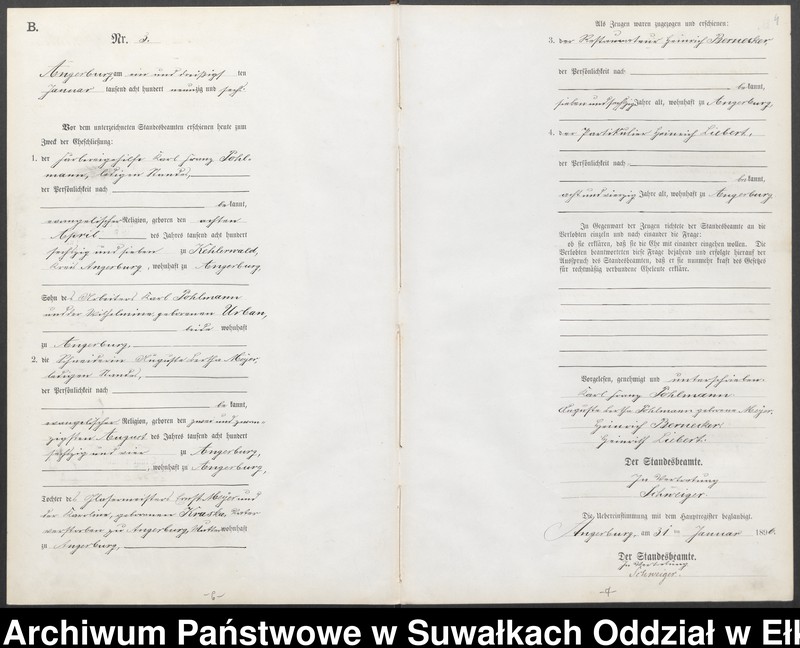 B.
Nr. 3.
Angerburg, am ein und dreißigsten
Januar tausend acht hundert neunzig und sechs.
Vor dem unterzeichneten Standesbeamten erschienen heute zum
Zweck der Eheschließung:
1. der Färbereigehilfe Karl Franz Pohl-
mann, ledigen Standes,
der Persönlichkeit nach
bekannt,
evangelischer Religion, geboren den achten
April des Jahres tausend acht hundert
sechszig und sieben zu Kehlerwald,
Kreis Angerburg, wohnhaft zu Angerburg,
Sohn des Arbeiters Karl Pohlmann
und der Wilhelmine geborenen Urban,
beide wohnhaft
zu Angerburg,
2. die Schneiderin Auguste Bertha Meyer,
ledigen Standes,
der Persönlichkeit nach
bekannt,
evangelischer Religion, geboren den zwei und zwan-
zigsten August des Jahres tausend acht hundert
sechszig und vier zu Angerburg,
, wohnhaft zu Angerburg,
Tochter des Glasermeisters Meyer und
der Karoline, geborenen Kraska, Vater
verstorben zu Angerburg, Mutter wohnhaft
zu Angerburg,
-6-
4
Als Zeugen waren zugezogen und erschienen:
3. der Restaurateur Heinrich Bernecker
der Persönlichkeit nach
bekannt,
sieben und sechzig Jahre alt, wohnhaft zu Angerburg,
4. der Partikulier Heinrich Liebert,
der Persönlichkeit nach
bekannt,
acht und vierzig Jahre alt, wohnhaft zu Angerburg
In Gegenwart der Zeugen richtete der Standesbeamte an die
Verlobten einzeln und nach einander die Frage:
ob sie erklären, daß sie die Ehe mit einander eingehen wollen. Die
Verlobten beantworteten diese Frage bejahend und erfolgte hierauf der
Ausspruch des Standesbeamten, daß er sie nunmehr kraft des Gesetzes
für rechtmäßig verbundene Eheleute erkläre.
Vorgelesen, genehmigt und unterschrieben
Karl Franz Pohlmann
Auguste Bertha Pohlmann geborene Meyer.
Heinrich Bernecker.
Heinrich Liebert.
Der Standesbeamte.
In Vertretung
Schweiger.
Die Uebereinstimmung mit dem Hauptregister beglaubigt.
Angerburg, am 31ten Januar 1896.
Der Standesbeamte.
In Vertretung
Schweiger.
-4-
Archiwum Państwowe w Suwałkach Oddział w Ełk